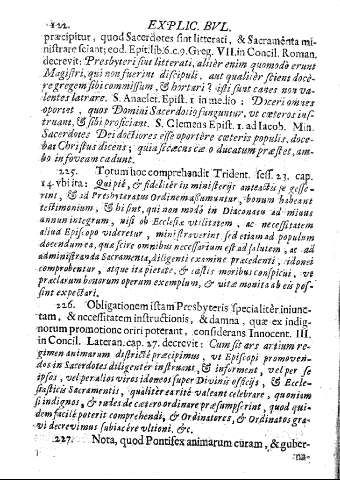 122. EXPLIC. BVL.
præcipitur, quod Sacerdotes sint litterati, & Sacramẽta mi-
nistrare sciant; eod. Epist. lib. 6. c. 9. Greg. VII. in Concil. Roman.
decrevit: Presbyteri sint litterati, alitèr enim quomodò erunt
Magistri, qui non fuerint discipuli, aut qualitèr scient docè-
re gregem sibi commissum, & hortari? isti sunt canes non va-
lentes latrare. S. Anaclet. Epist. 1. in medio: Doceri omnes
oportet, quos Domini Sacerdotio funguntur, vt cæteros ins-
truant, & sibi proficiant. S. Clemens Epist. 1. ad Iacob. Min.
Sacerdotes Dei doctores esse oportère cæteris populis, doce-
bas Christus dicens; quia si cæcus cæco ducatum præstet, am-
bo in foveam cadunt.
225. Totum hoc comprehendit Trident. sess. 23. cap.
14. vbi ita: Qui piè, & fidelitèr in ministerijs anteactis se gesse-
rint, & ad Presbyteratus Ordinem assumuntur, bonum habeant
testimonium, & hi sint, qui non modò in Diaconatu ad minus
annum integrum, nisi ob Ecclesiæ vtilitatem, ac necessitatem
aliud Episcopo videretur, ministraverint, sed etiam ad populum
docendum ea, quæ scire omnibus necessarium est ad salutem, ac ad
administranda Sacramenta, diligenti examine præcedenti, idonei
comprobentur, atque ita pietate, & castis moribus conspicui, vt
præclarum bonorum operum exemplum, & vitæ monita ab eis pos-
sint expectari.
226. Obligationem istam Presbyteris specialitèr iniunc-
tam, & necessitatem instructionis, & damna, quæ ex indig-
norum promotione oriri poterant, considerans Innocent. III.
in Concil. Lateran. cap. 27. decrevit: Cum sit ars artium re-
gimen animarum districtè præcipimus, vt Episcopi promoven-
dos in Sacerdotes diligenter instruant, & informent, vel per se
ipsos, vel per alios viros idoneos super Divinis officijs, & Eccle-
siasticis Sacramentis, qualitèr ea ritè valeant celebrare, quoniam
si indignos, & rudes de cætero ordinare præsumpserint, quod qui-
dem facilè poterit comprehendi, & Ordinatores, & Ordinatos gra-
vi decrevimus subiacère vltioni, &c.
227. Nota, quod Pontifex animarum curam, & guber-
na-